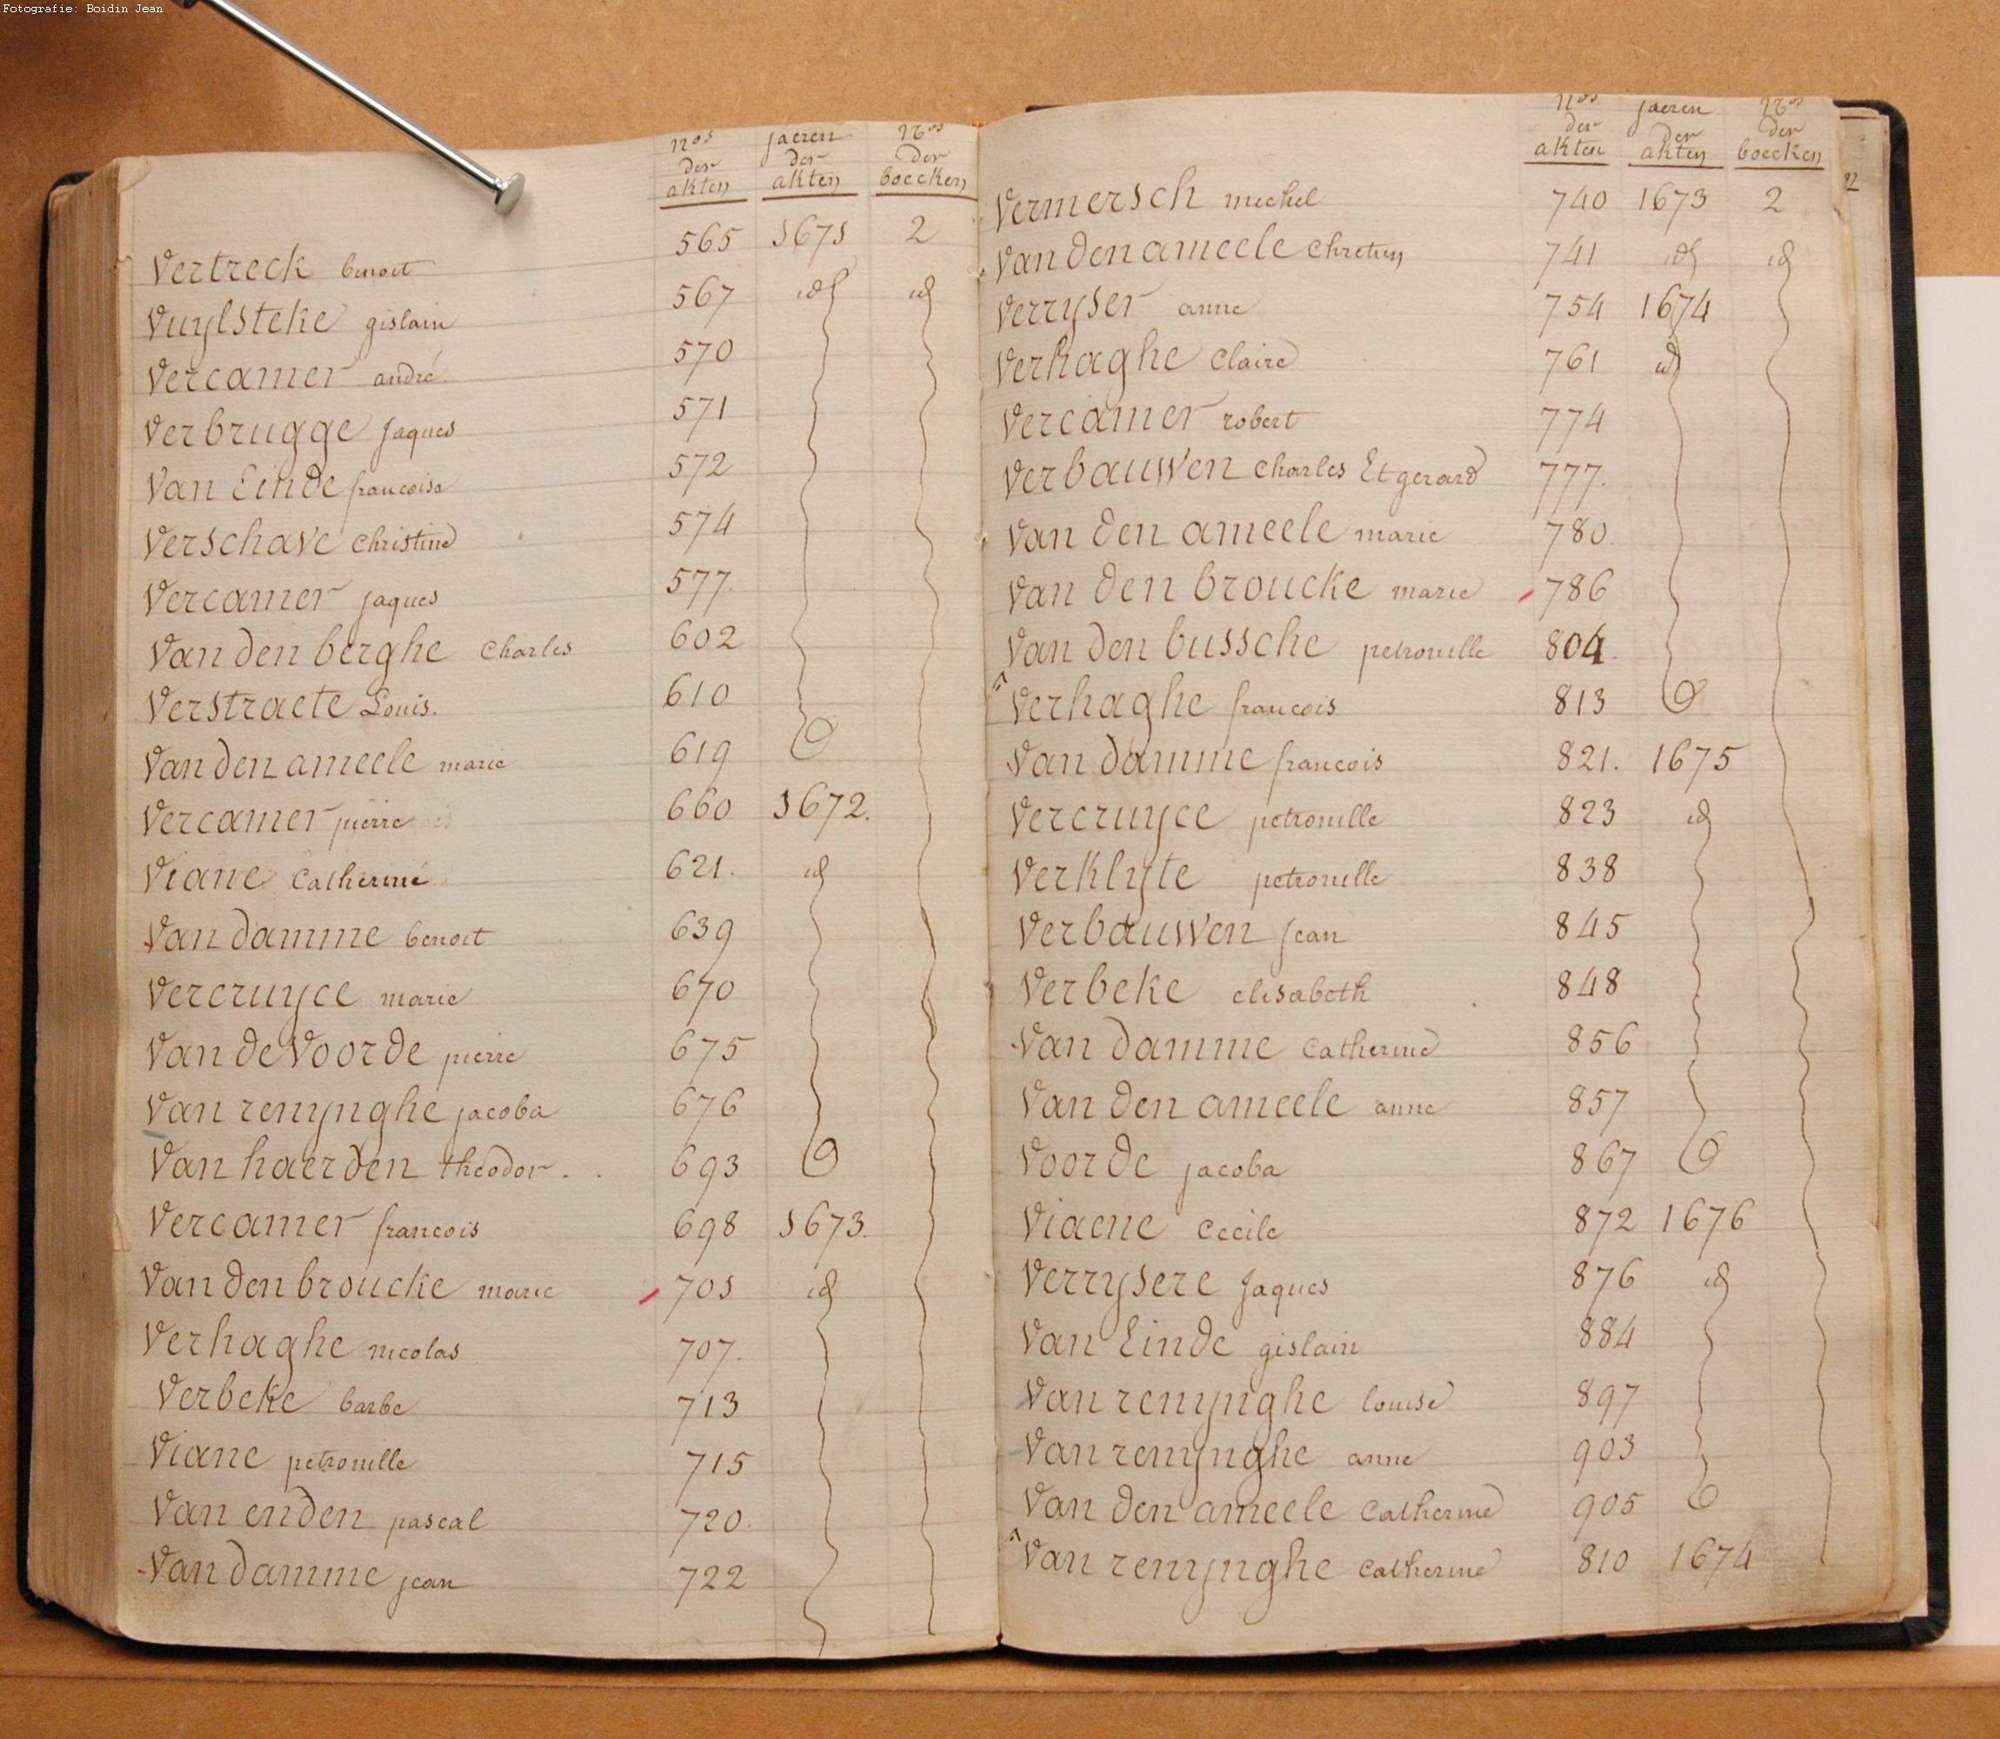 Fotografie: Boidin Jean
nos jaeren nos
der der der
akten akten boecken
Vertreck benoit 565 1671 2
Vuylsteke gislain 567 id id
Vercamer andré 570
Verbrugge jaques 571
Van Einde francoise 572
Verschave christine 574
Vercamer jaques 577.
Van den berghe charles 602
Verstraete Louis. 610
Van den ameele marie 619
Vercamer pierre 660 1672.
Viane catherine 621. id
Van damme benoit 639
Vercruyce marie 670
Van de Voorde pierre 675
Van renynghe jacoba 676
Van haerden theodor . . 693
Vercamer francois 698 1673.
Van den broucke marie 701 id
Verhaghe nicolas 707.
Verbeke barbe 713
Viane petronille 715
Van enden pascal 720.
Van damme jean 722
nos jaeren nos
der der der
akten akten boecken
Vermersch michel 740 1673 2
Van den ameele chretien 741 id id
Verryser anne 754 1674
Verhaghe claire 761 id
Vercamer robert 774
Verbauwen charles Et gerard 777.
Van den ameele marie 780.
Van den broucke marie 786
Van den bussche petronille 804.
Verhaghe francois 813
Van damme francois 821. 1675
Vercruyce petronille 823 id
Verklyte petronille 838
Verbauwen jean 845
Verbeke elisabeth 848
Van damme catherine 856
Van den ameele anne 857
Voorde jacoba 867
Viaene cecile 872 1676
Verrysere jaques 876 id
Van Einde gislain 884
Van renynghe louise 897
Van renynghe anne 903
Van den ameele catherine 905
Van renynghe catherine 810 1674